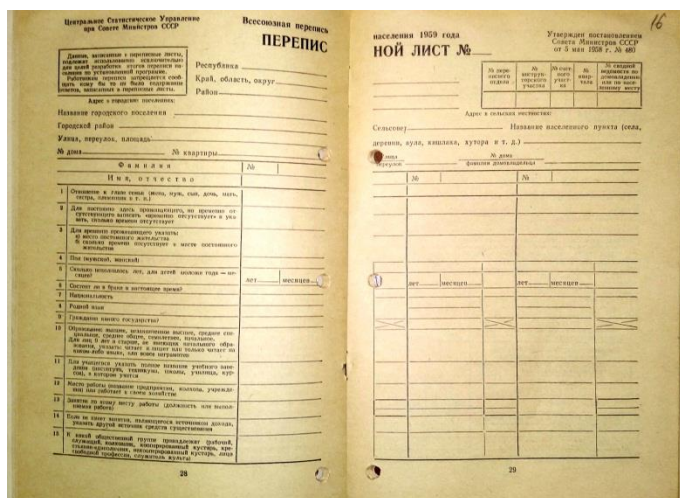 Центральное Статистическое Управление
при Совете Министров СССР
Всесоюзная перепись
ПЕРЕПИС
Данные, записанные в переписные листы,
подлежат использованию исключительно
для целей разработки итогов переписи на-
селения по установленной программе.
Работникам переписи запрещается сооб-
щать кому бы то ни было содержание
ответов, записанных в переписные листы.
Республика
Край, область, округ
Район
Адрес в городских поселениях:
Название городского поселения
Городской район
Улица, переулок, площадь
№ дома № квартиры
Фамилия №
Имя, отчество
1 Отношение к главе семьи (жена, муж, сын, дочь, мать,
сестра, племянник и т. п.)
2 Для постоянно здесь проживающего, но временно от-
сутствующего записать «временно отсутствует» и ука-
зать, сколько времени отсутствует
3 Для временно проживающего указать:
а) место постоянного жительства
б) сколько времени отсутствует с места постоянного
жительства
4 Пол (мужской, женский)
5 Сколько исполнилось лет, для детей моложе года — ме-
сяцев? лет месяцев
6 Состоит ли в браке в настоящее время?
7 Национальность
8 Родной язык
9 Гражданин какого государства?
10 Образование: высшее, незаконченное высшее, среднее спе-
циальное, среднее общее, семилетнее, начальное.
Для лиц 9 лет и старше, не имеющих начального обра-
зования, указать: читает и пишет или только читает на
каком-либо языке, или вовсе неграмотен
11 Для учащегося указать полное название учебного заве-
дения (института, техникума, школы, училища, кур-
сов), в котором учится
12 Место работы (название предприятия, колхоза, учрежде-
ния) или работает в своем хозяйстве
13 Занятие по этому месту работы (должность или выпол-
няемая работа)
14 Если не имеет занятия, являющегося источником дохода,
указать другой источник средств существования
15 К какой общественной группе принадлежит (рабочий,
служащий, колхозник, кооперированный кустарь, кре-
стьянин-единоличник, некооперированный кустарь, лица
свободной профессии, служитель культа)
28
16
населения 1959 года
НОЙ ЛИСТ №
Утвержден постановлением
Совета Министров СССР
от 5 мая 1958 г. № 480
№ пере-
писного
отдела
№
инструк-
торского
участка
№ счет-
ного
участ-
ка
№
квар-
тала
№ сводной
ведомости по
домовладению
или по насе-
ленному месту
Адрес в сельских местностях:
Сельсовет Название населенного пункта (села,
деревни, аула, кишлака, хутора и т. д.)
улица
переулок
№ дома
фамилия домовладельца
№ №
лет месяцев лет месяцев
29